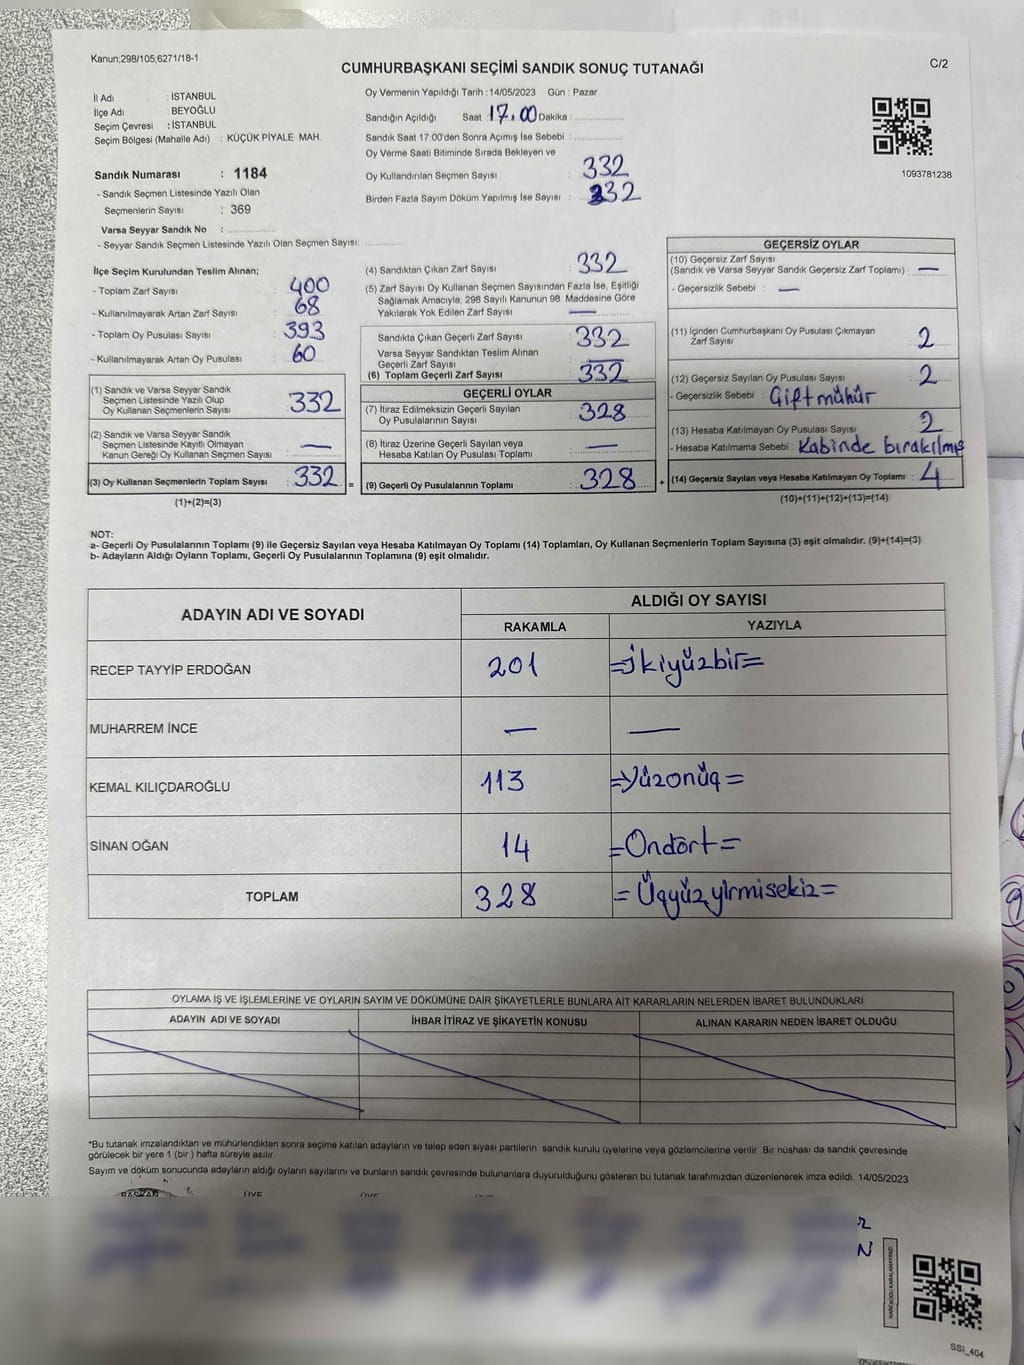 Kanun;298/105,6271/18-1
CUMHURBAŞKANI SEÇİMİ SANDIK SONUÇ TUTANAĞI
C/2
İl Adı : İSTANBUL
İlçe Adı : BEYOĞLU
Seçim Çevresi : İSTANBUL
Seçim Bölgesi (Mahalle Adı) : KÜÇÜK PİYALE MAH.
Oy Vermenin Yapıldığı Tarih : 14/05/2023 Gün : Pazar
Sandığın Açıldığı Saat : 17.00 Dakika :
Sandık Saat 17.00'den Sonra Açımış İse Sebebi :
Oy Verme Saati Bitiminde Sırada Bekleyen ve
Oy Kullandırılan Seçmen Sayısı : 332
Birden Fazla Sayım Döküm Yapılmış İse Sayısı : 332
1093781238
Sandık Numarası : 1184
- Sandık Seçmen Listesinde Yazılı Olan
Seçmenlerin Sayısı : 369
Varsa Seyyar Sandık No :
- Seyyar Sandık Seçmen Listesinde Yazılı Olan Seçmen Sayısı:
İlçe Seçim Kurulundan Teslim Alınan;
- Toplam Zarf Sayısı : 400
- Kullanılmayarak Artan Zarf Sayısı : 68
- Toplam Oy Pusulası Sayısı : 393
- Kullanılmayarak Artan Oy Pusulası : 60
(1) Sandık ve Varsa Seyyar Sandık
Seçmen Listesinde Yazılı Olup
Oy Kullanan Seçmenlerin Sayısı : 332
(2) Sandık ve Varsa Seyyar Sandık
Seçmen Listesinde Kayıtlı Olmayan
Kanun Gereği Oy Kullanan Seçmen Sayısı : —
(3) Oy Kullanan Seçmenlerin Toplam Sayısı : 332 =
(1)+(2)=(3)
(4) Sandıktan Çıkan Zarf Sayısı : 332
(5) Zarf Sayısı Oy Kullanan Seçmen Sayısından Fazla İse, Eşitliği
Sağlamak Amacıyla; 298 Sayılı Kanunun 98. Maddesine Göre
Yakılarak Yok Edilen Zarf Sayısı : —
Sandıkta Çıkan Geçerli Zarf Sayısı : 332
Varsa Seyyar Sandıktan Teslim Alınan
Geçerli Zarf Sayısı : —
(6) Toplam Geçerli Zarf Sayısı : 332
GEÇERLİ OYLAR
(7) İtiraz Edilmeksizin Geçerli Sayılan
Oy Pusulalarının Sayısı : 328
(8) İtiraz Üzerine Geçerli Sayılan veya
Hesaba Katılan Oy Pusulalarının Toplamı : —
(9) Geçerli Oy Pusulalarının Toplamı : 328 +
GEÇERSİZ OYLAR
(10) Geçersiz Zarf Sayısı
(Sandık ve Varsa Seyyar Sandık Geçersiz Zarf Toplamı) : —
- Geçersizlik Sebebi : —
(11) İçinden Cumhurbaşkanı Oy Pusulası Çıkmayan
Zarf Sayısı : 2
(12) Geçersiz Sayılan Oy Pusulası Sayısı : 2
- Geçersizlik Sebebi : Çift mühür
(13) Hesaba Katılmayan Oy Pusulası Sayısı : 2
- Hesaba Katılmama Sebebi : Kabinde bırakılmış
(14) Geçersiz Sayılan veya Hesaba Katılmayan Oy Toplamı : 4
(10)+(11)+(12)+(13)=(14)
NOT:
a- Geçerli Oy Pusulalarının Toplamı (9) ile Geçersiz Sayılan veya Hesaba Katılmayan Oy Toplamı (14) Toplamları, Oy Kullanan Seçmenlerin Toplam Sayısına (3) eşit olmalıdır. (9)+(14)=(3)
b- Adayların Aldığı Oyların Toplamı, Geçerli Oy Pusulalarının Toplamına (9) eşit olmalıdır.
ADAYIN ADI VE SOYADI
ALDIĞI OY SAYISI
RAKAMLA YAZIYLA
RECEP TAYYİP ERDOĞAN 201 =İkiyüzbir=
MUHARREM İNCE — —
KEMAL KILIÇDAROĞLU 113 =Yüzonüç=
SİNAN OĞAN 14 =Ondört=
TOPLAM 328 =Üçyüzyirmisekiz=
OYLAMA İŞ VE İŞLEMLERİNE VE OYLARIN SAYIM VE DÖKÜMÜNE DAİR ŞİKAYETLERLE BUNLARA AİT KARARLARIN NELERDEN İBARET BULUNDUKLARI
ADAYIN ADI VE SOYADI İHBAR İTİRAZ VE ŞİKAYETİN KONUSU ALINAN KARARIN NEDEN İBARET OLDUĞU
*Bu tutanak imzalandıktan ve mühürlendikten sonra seçime katılan adayların ve talep eden siyasi partilerin sandık kurulu üyelerine veya gözlemcilerine verilir .Bir nüshası da sandık çevresinde
görülecek bir yere 1 (bir ) hafta süreyle asılır.
Sayım ve döküm sonucunda adayların aldığı oyların sayılarını ve bunların sandık çevresinde bulunanlara duyurulduğunu gösteren bu tutanak tarafımızdan düzenlenerek imza edildi. 14/05/2023
BAŞKAN ÜYE ÜYE ÜYE
KAREKODU KARALAMAYINIZ!
SSI_404